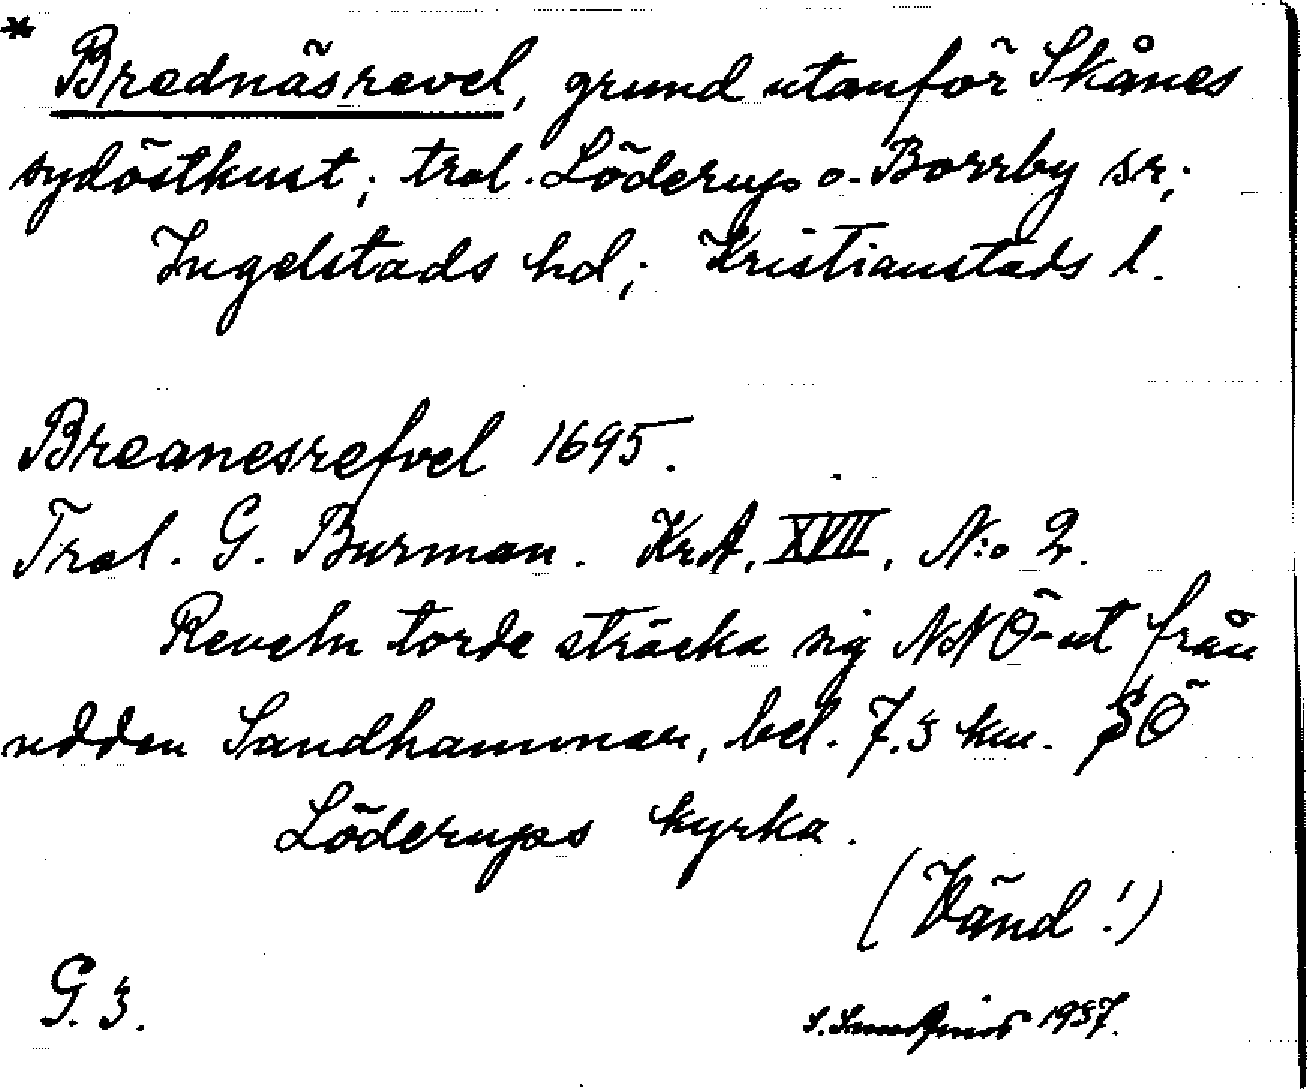 * Brednäsrevel, grund utanför Skånes
sydöstkust; trol. Löderups o. Borrby sr;
Ingelstads hd; Kristianstads l.
Breanesrefvel 1695.
Trol. G. Burman. KrA. XVII. N:o 2.
Reveln torde sträcka sig NNÖ-ut från
udden Sandhammar, bel. 7.3 km. SÖ
Löderups kyrka.
(Vänd!)
G. 3.
S. 1937.